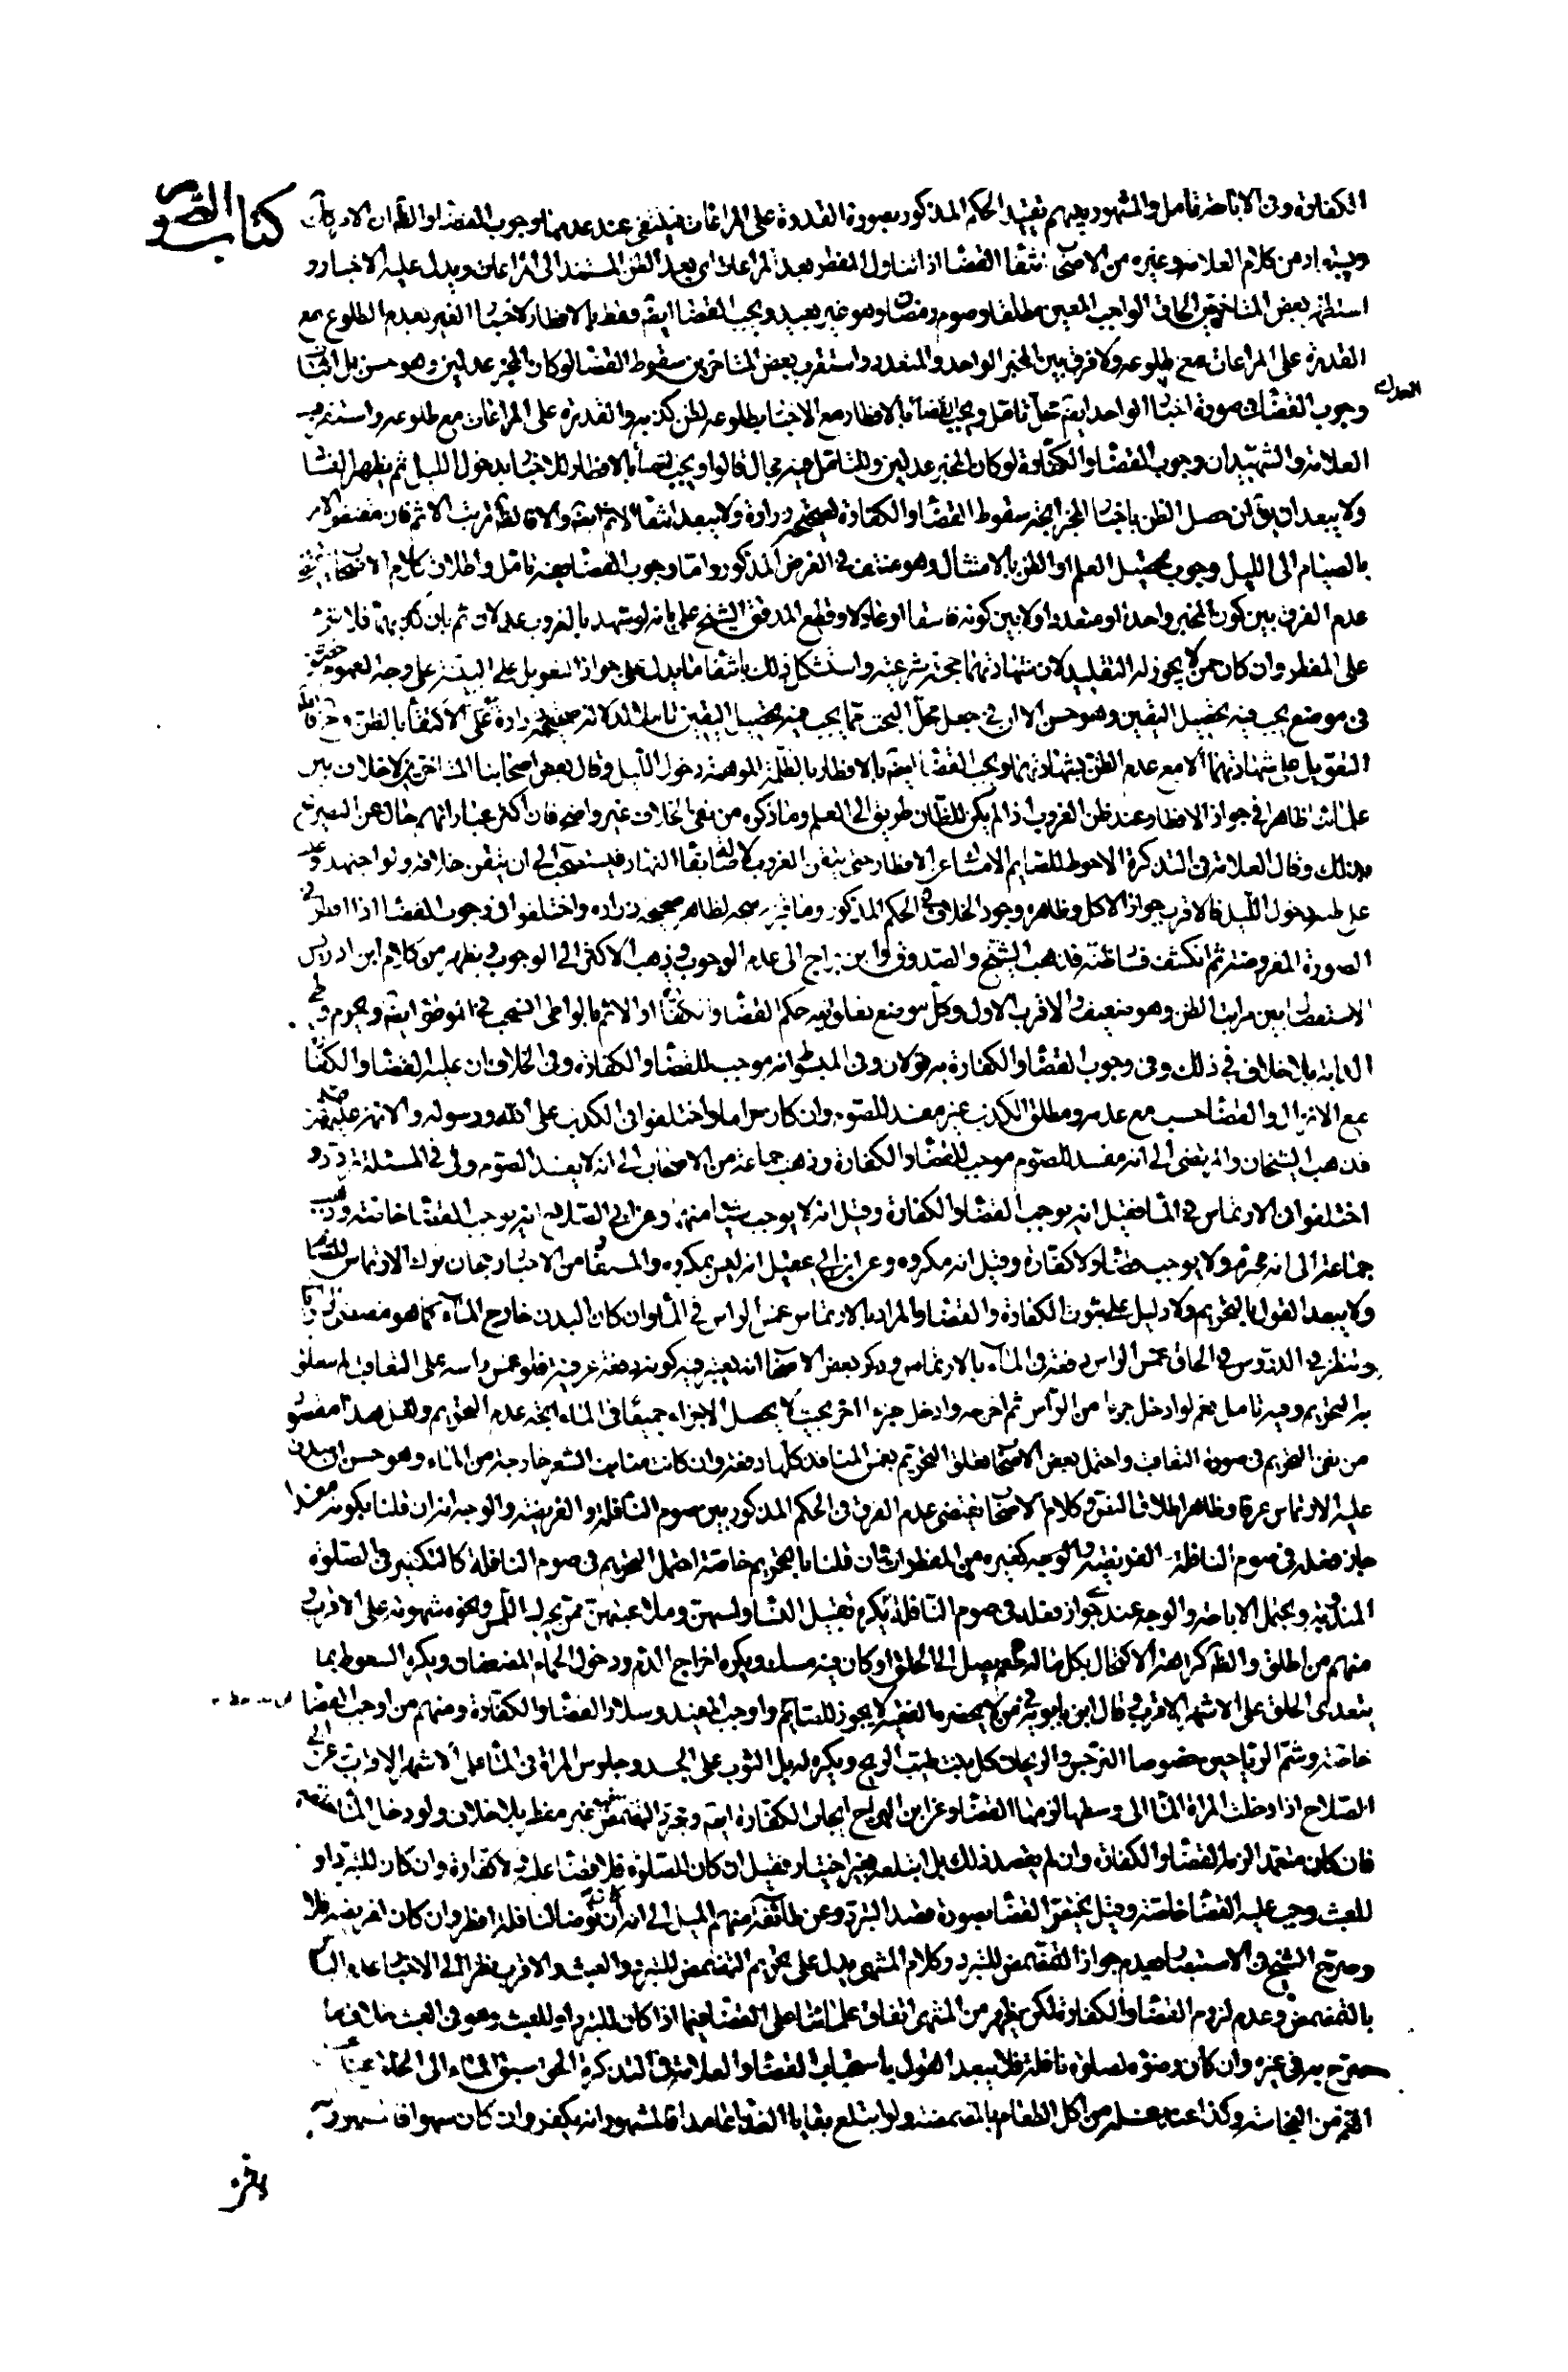 كتاب الصوم
الكفارة وفى الاباحة تامل والمشهور بينهم تقييد الحكم المذكور بصورة القدرة على المراعات فينتفى عند عدمها وجوب القضاء والظ ان الامر كك
ويستفاد من كلام العلامة وغيره من الاصحاب انتفاء القضاء اذا تناول المفطر بعد المراعات اى بعد الظن المستند الى المراعات ويدل عليه الاخبار و
استظهر بعض المتاخرين الحاق الواجب المعين مطلقا بصوم رمضان وهو غير بعيد ويجب القضاء ايضا فقط بالافطار لاخبار الغير بعدم الطلوع مع
القدرة على المراعات مع طلوعه ولا فرق بين المخبر الواحد والمتعدد واستقرب بعض المتاخرين سقوط القضاء لو كان المخبر عدلين وهو حسن بل اثبات
العدل
وجوب القضاء فى صورة اخبار الواحد ايضا محل تامل ويجب القضاء بالافطار مع الاخبار بطلوعه لظن كذبه والقدرة على المراعات مع طلوعه واستقرب
العلامة والشهيدان وجوب القضاء والكفارة لو كان المخبر عدلين وللتامل فيه مجال قالوا ويجب القضاء بالافطار للاخبار بدخول الليل ثم يظهر الفساد
ولا يبعد ان يق ان حصل الظن باخبار المخبر اتجه سقوط القضاء والكفارة لصحيحة زرارة ولا يبعد انتفاء الاثم ايضا والا فالظ ترتب الاثم فان مقتضى الامر
بالصيام الى الليل وجوب تحصيل العلم او الظن بالامتثال وهو منتف فى الفرض المذكور واما وجوب القضاء ففيه تامل واطلاق كلام الاصحاب يقتضى
عدم الفرق بين كون المخبر واحدا او متعددا ولا بين كونه فاسقا او عادلا وقطع المدقق الشيخ على بانه لو شهد بالغروب عدلان ثم بان كذبهما فلا شئ
على المفطر وان كان ممن لا يجوز له التقليد لان شهادتهما حجة شرعية واستشكل ذلك بانتفاء ما يدل على جواز التعويل على البينة على وجه العموم خصوصا
فى موضع يجب فيه تحصيل اليقين وهو حسن الا ان فى جعل محل البحث مما يجب فيه تحصيل اليقين تاملا لدلالة صحيحة زرارة على الاكتفاء بالظن
التعويل على شهادتهما الا مع عدم الظن بشهادتهما ويجب القضاء ايضا بالافطار بالظلمة الموهمة دخول الليل وقال بعض اصحابنا المتاخرين لا خلاف بين
علمائنا ظاهرا فى جواز الافطار عند ظن الغروب اذا لم يكن للظان طريق الى العلم وما ذكره من نفى الخلاف غير واضح فان اكثر عباراتهم خال عن التصريح
بذلك وقال العلامة فى التذكرة الاحوط للصايم الامساك عن الافطار حتى يتيقن الغروب لاصالة بقاء النهار فيستصحب الى ان يتيقن خلافه ولو اجتهد وغلب
على ظنه دخول الليل فالاقرب جواز الاكل وظاهره وجود الخلاف فى الحكم المذكور وما قربه متجه لظاهر صحيحة زرارة واختلفوا فى وجوب القضاء اذا افطر فى
الصورة المفروضة ثم انكشف فساد ظنه فذهب الشيخ والصدوق وابن براج الى عدم الوجوب وذهب الاكثر الى الوجوب ويظهر من كلام ابن ادريس
الاستفصال بين مراتب الظن وهو ضعيف والاقرب الاول وكل موضع تعلق فيه حكم القضاء والكفارة او الاثم بالواطى انسحب فى الموطوء ايضا ويحرم وطى
الدابة بلا خلاف فى ذلك وفى وجوب القضاء والكفارة به قولان وفى المبسوط انه موجب للقضاء والكفارة وفى الخلاف ان عليه القضاء والكفارة
مع الانزال والقضاء حسب مع عدمه ومطلق الكذب غير مفسد للصوم وان كان حراما واختلفوا فى الكذب على الله ورسوله والائمة عليهم السلام
فذهب الشيخان والمرتضى الى انه مفسد للصوم موجب للقضاء والكفارة وذهب جماعة من الاصحاب الى انه لا يفسد الصوم ولى فى المسئلة تردد و
اختلفوا فى الارتماس فى الماء فقيل انه يوجب القضاء والكفارة وقيل انه لا يوجب شيئا منهما وعن ابى الصلاح انه يوجب القضاء خاصة وذهب
جماعة الى انه محرم ولا يوجب قضاء ولا كفارة وقيل انه مكروه وعن ابن ابى عقيل انه ليس بمكروه والمستفاد من الاخبار رجحان ترك الارتماس للصائم
ولا يبعد القول بالتحريم ولا دليل على ثبوت الكفارة والقضاء والمراد بالارتماس غمس الراس فى الماء وان كان البدن خارج الماء كما هو مقتضى
وتنظر فى الدروس فى الحاق غمس الراس دفعة فى الماء بالارتماس وذكر بعض الاصحاب انه يعتبر فيه كونه دفعة عرفية فلو غمس راسه على التعاقب لم يتعلق
به التحريم وفيه تامل نعم لو ادخل جزءا من الراس ثم اخرجه وادخل جزءا اخر بحيث لا يحصل الاجزاء جميعا فى الماء اتجه عدم التحريم ولعل هذا مقصود
من نفى التحريم فى صورة التعاقب واحتمل بعض الاصحاب تعلق التحريم بغمس المنافذ كلها دفعة وان كانت منابت الشعر خارجة من الماء وهو حسن ان صدق
عليه الارتماس عرفا وظاهر اطلاق النص وكلام الاصحاب يقتضى عدم الفرق فى الحكم المذكور بين صوم النافلة والفريضة والوجه انه ان قلنا بكونه مفسدا
جاز فعله فى صوم النافلة الفريضة والوجه كغيره من المفطرات وان قلنا بالتحريم خاصة احتمل التحريم فى صوم النافلة كالتكفير فى الصلوة
المندوبة ويحتمل الاباحة والوجه عندى جواز فعله فى صوم النافلة ويكره تقبيل النساء ولمسهن وملاعبتهن ممن يحرك اللمس ونحوه شهوته على الاقرب و
منهم من اطلق والظ كراهة الاكتحال بكل ما له طعم يصل الى الحلق او كان فيه مسك ويكره اخراج الدم ودخول الحمام المضعفان ويكره السعوط بما
يتعدى الحلق على الاشهر الاقرب وقال ابن بابويه فى من لا يحضره الفقيه لا يجوز للصايم واوجب المفيد وسلار القضاء والكفارة ومنهم من اوجب القضاء
خاصة وشم الرياحين خصوصا النرجس والريحان كل نبت طيب الريح ويكره له بل الثوب على الجسد وجلوس المراة فى الماء على الاشهر الاقرب وعن ابى
الصلاح اذا دخلت المراة الماء الى وسطها لزمها القضاء وعن ابن البراج ايجاب الكفارة ايضا ومجرد المضمضة غير مفطر بلا خلاف ولو دخل الماء حلقه
فان كان متعمدا لزمه القضاء والكفارة وان لم يقصد ذلك بل ابتلعه بغير اختيار فقيل ان كان للصلوة فلا قضاء عليه ولا كفارة وان كان للتبرد او
للعبث وجب عليه القضاء خاصة وقيل يختص القضاء بصورة قصد التبرد وعن طائفة منهم الميل الى انه ان توضا لنافلة افطر وان كان لفريضة فلا
وصرح الشيخ فى الاستبصار بعدم جواز التمضمض للتبرد وكلام المنتهى يدل على تحريم التمضمض للتبرد والعبث والاقرب نظرا الى الاخبار عدم الباس
بالتمضمض وعدم لزوم القضاء والكفارة لكن يظهر من المنتهى اتفاق علمائنا على القضاء فيما اذا كان للتبرد او للعبث وهو فى العبث خلاف ما
صرح به فى غيره وان كان وضوءه لصلوة نافلة فلا يبعد القول باستحباب القضاء والعلامة فى التذكرة الحق سبق الماء الى الحلق عند غسل
الفم من النجاسة وكذا عند غسله من اكل الطعام بالمضمضة ولو ابتلع بقايا الغذاء عامدا فالمشهور انه يكفر وان كان سهوا فالمشهور انه